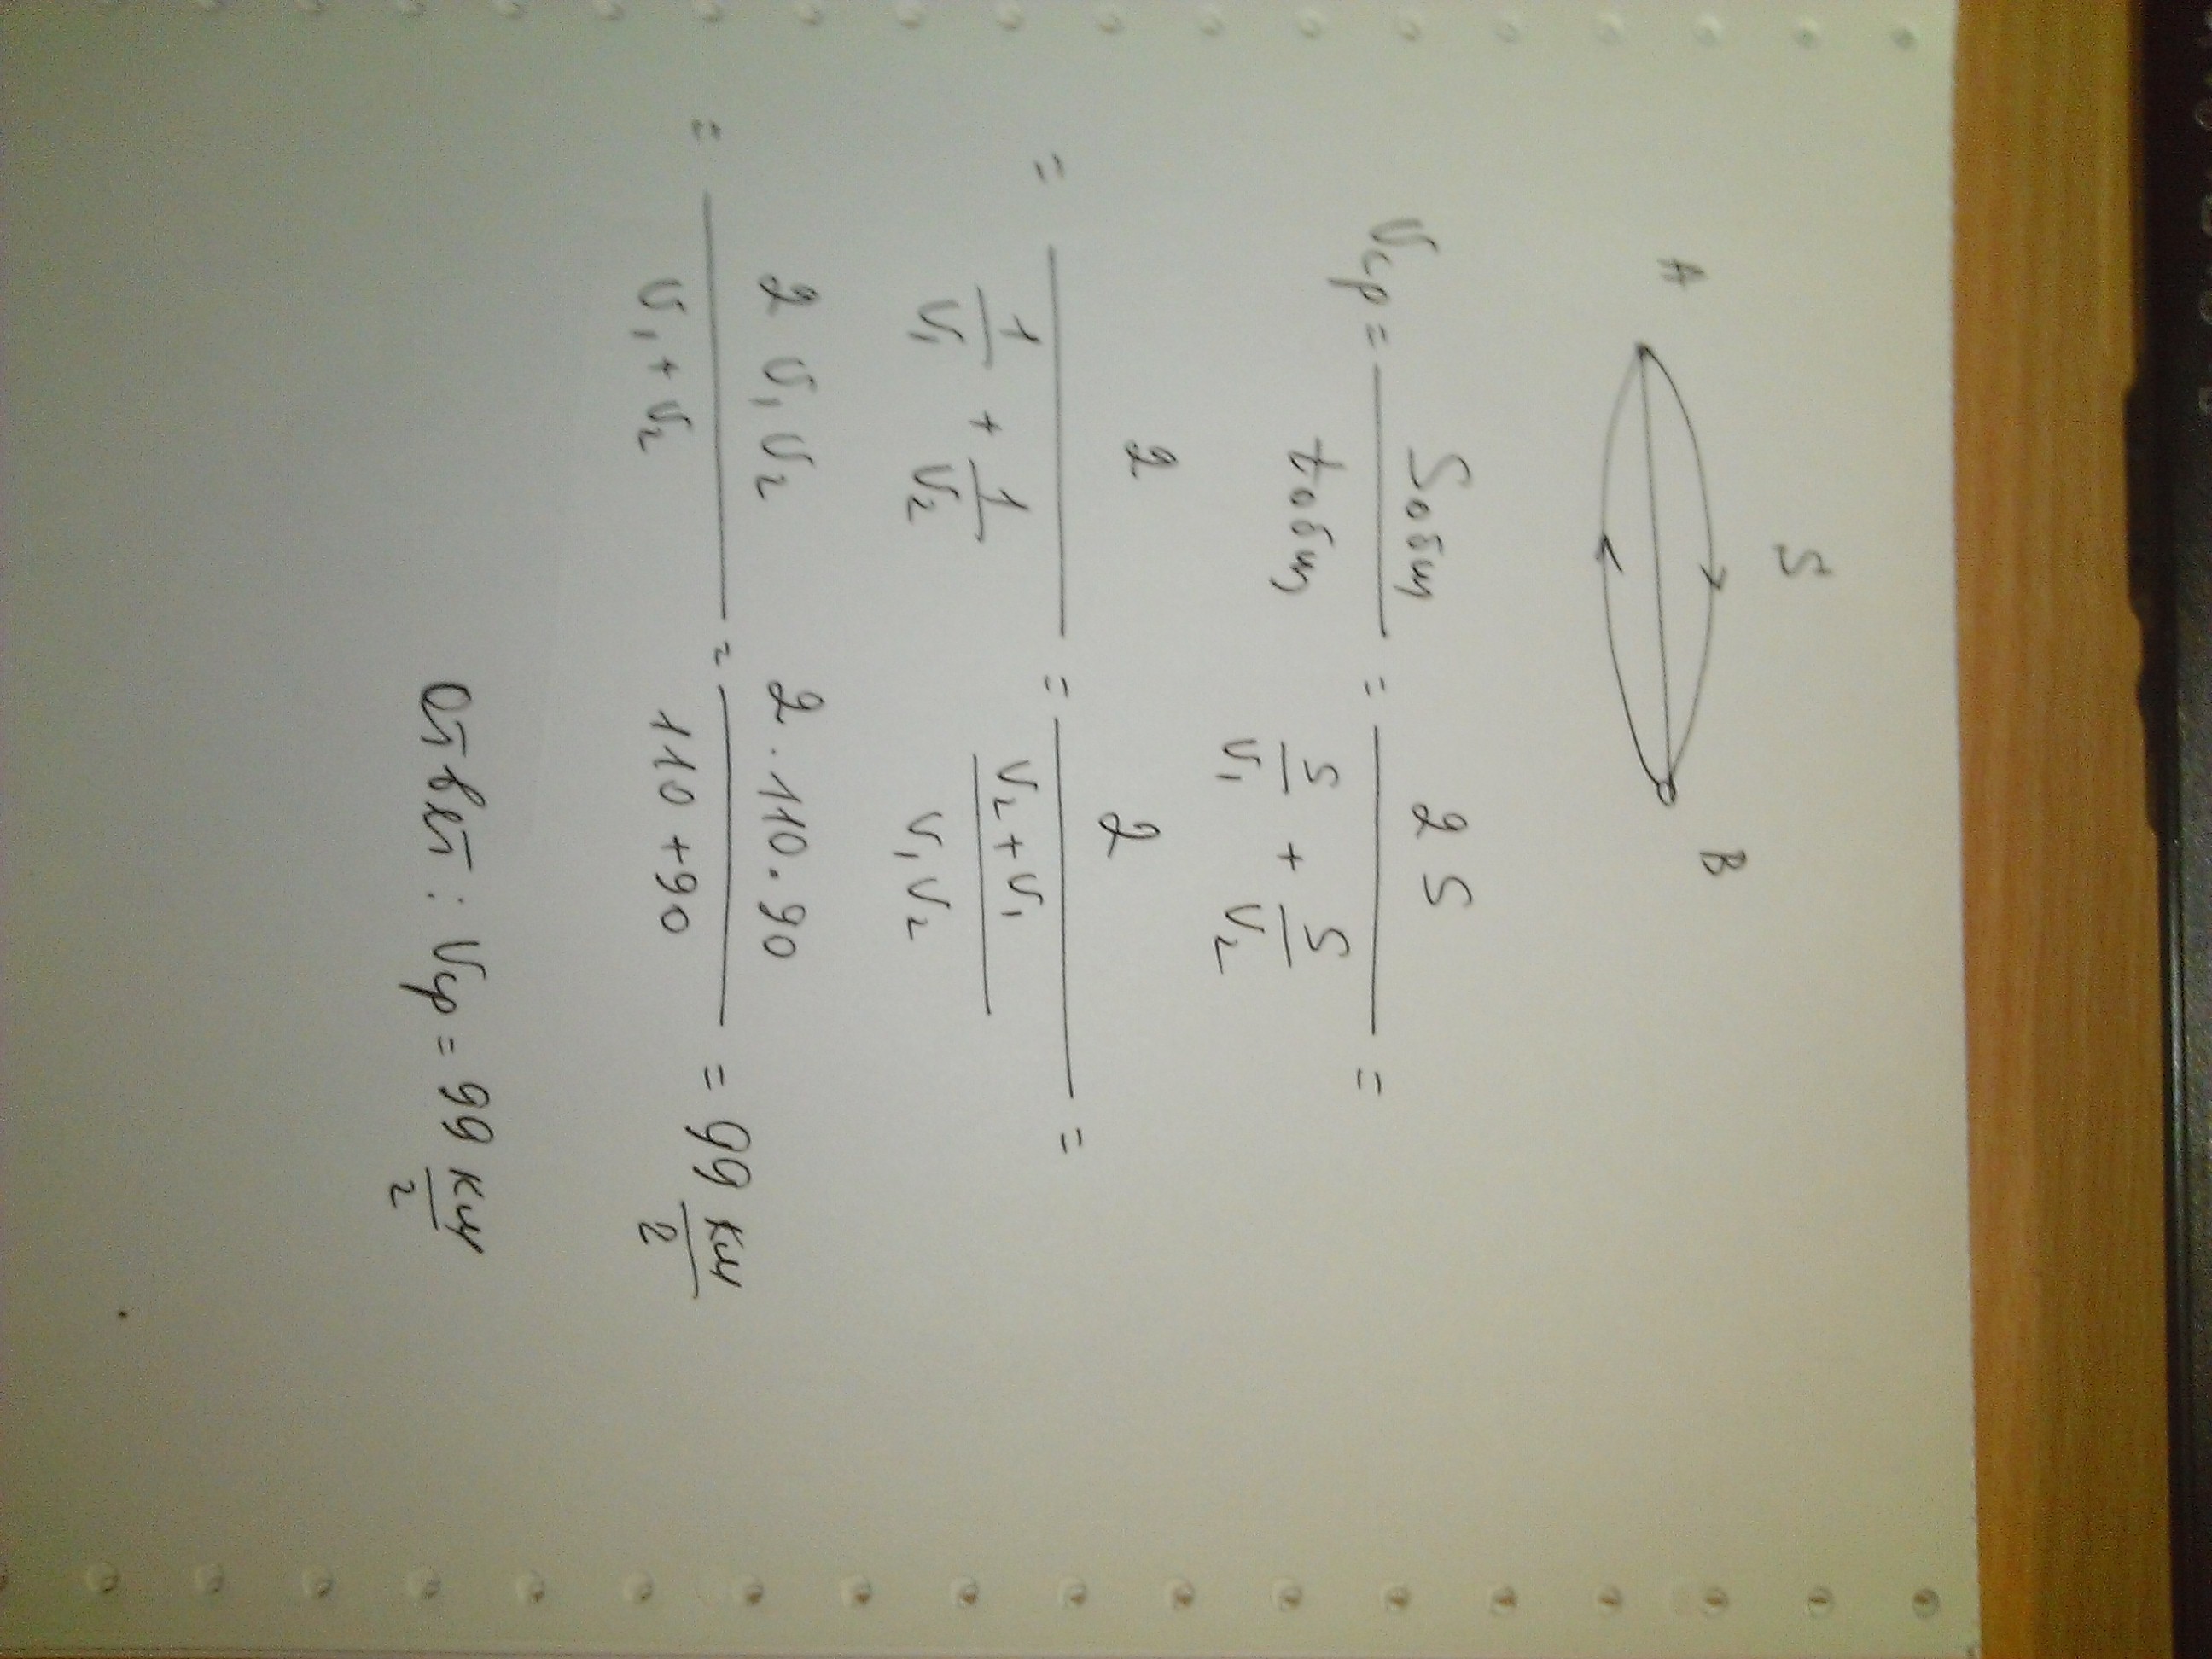 S
A B
Vср = Sобщ / tобщ = 2S / (S/V₁ + S/V₂) =
= 2 / (1/V₁ + 1/V₂) = 2 / ((V₂+V₁)/(V₁V₂)) =
= 2V₁V₂ / (V₁+V₂) = 2·110·90 / (110+90) = 99 км/г
Ответ: Vср = 99 км/г